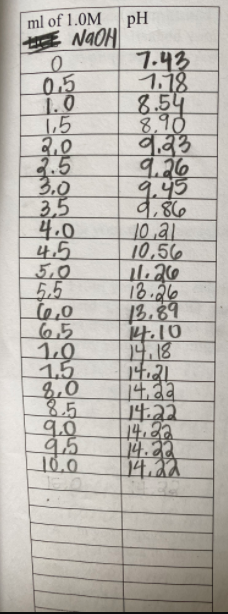 ml of 1.0M pH
NaOH
0 7.43
0.5 7.78
1.0 8.54
1.5 8.90
2.0 9.23
2.5 9.26
3.0 9.45
3.5 9.86
4.0 10.21
4.5 10.56
5.0 11.26
5.5 13.26
6.0 13.89
6.5 14.10
7.0 14.18
7.5 14.21
8.0 14.22
8.5 14.22
9.0 14.22
9.5 14.22
10.0 14.22